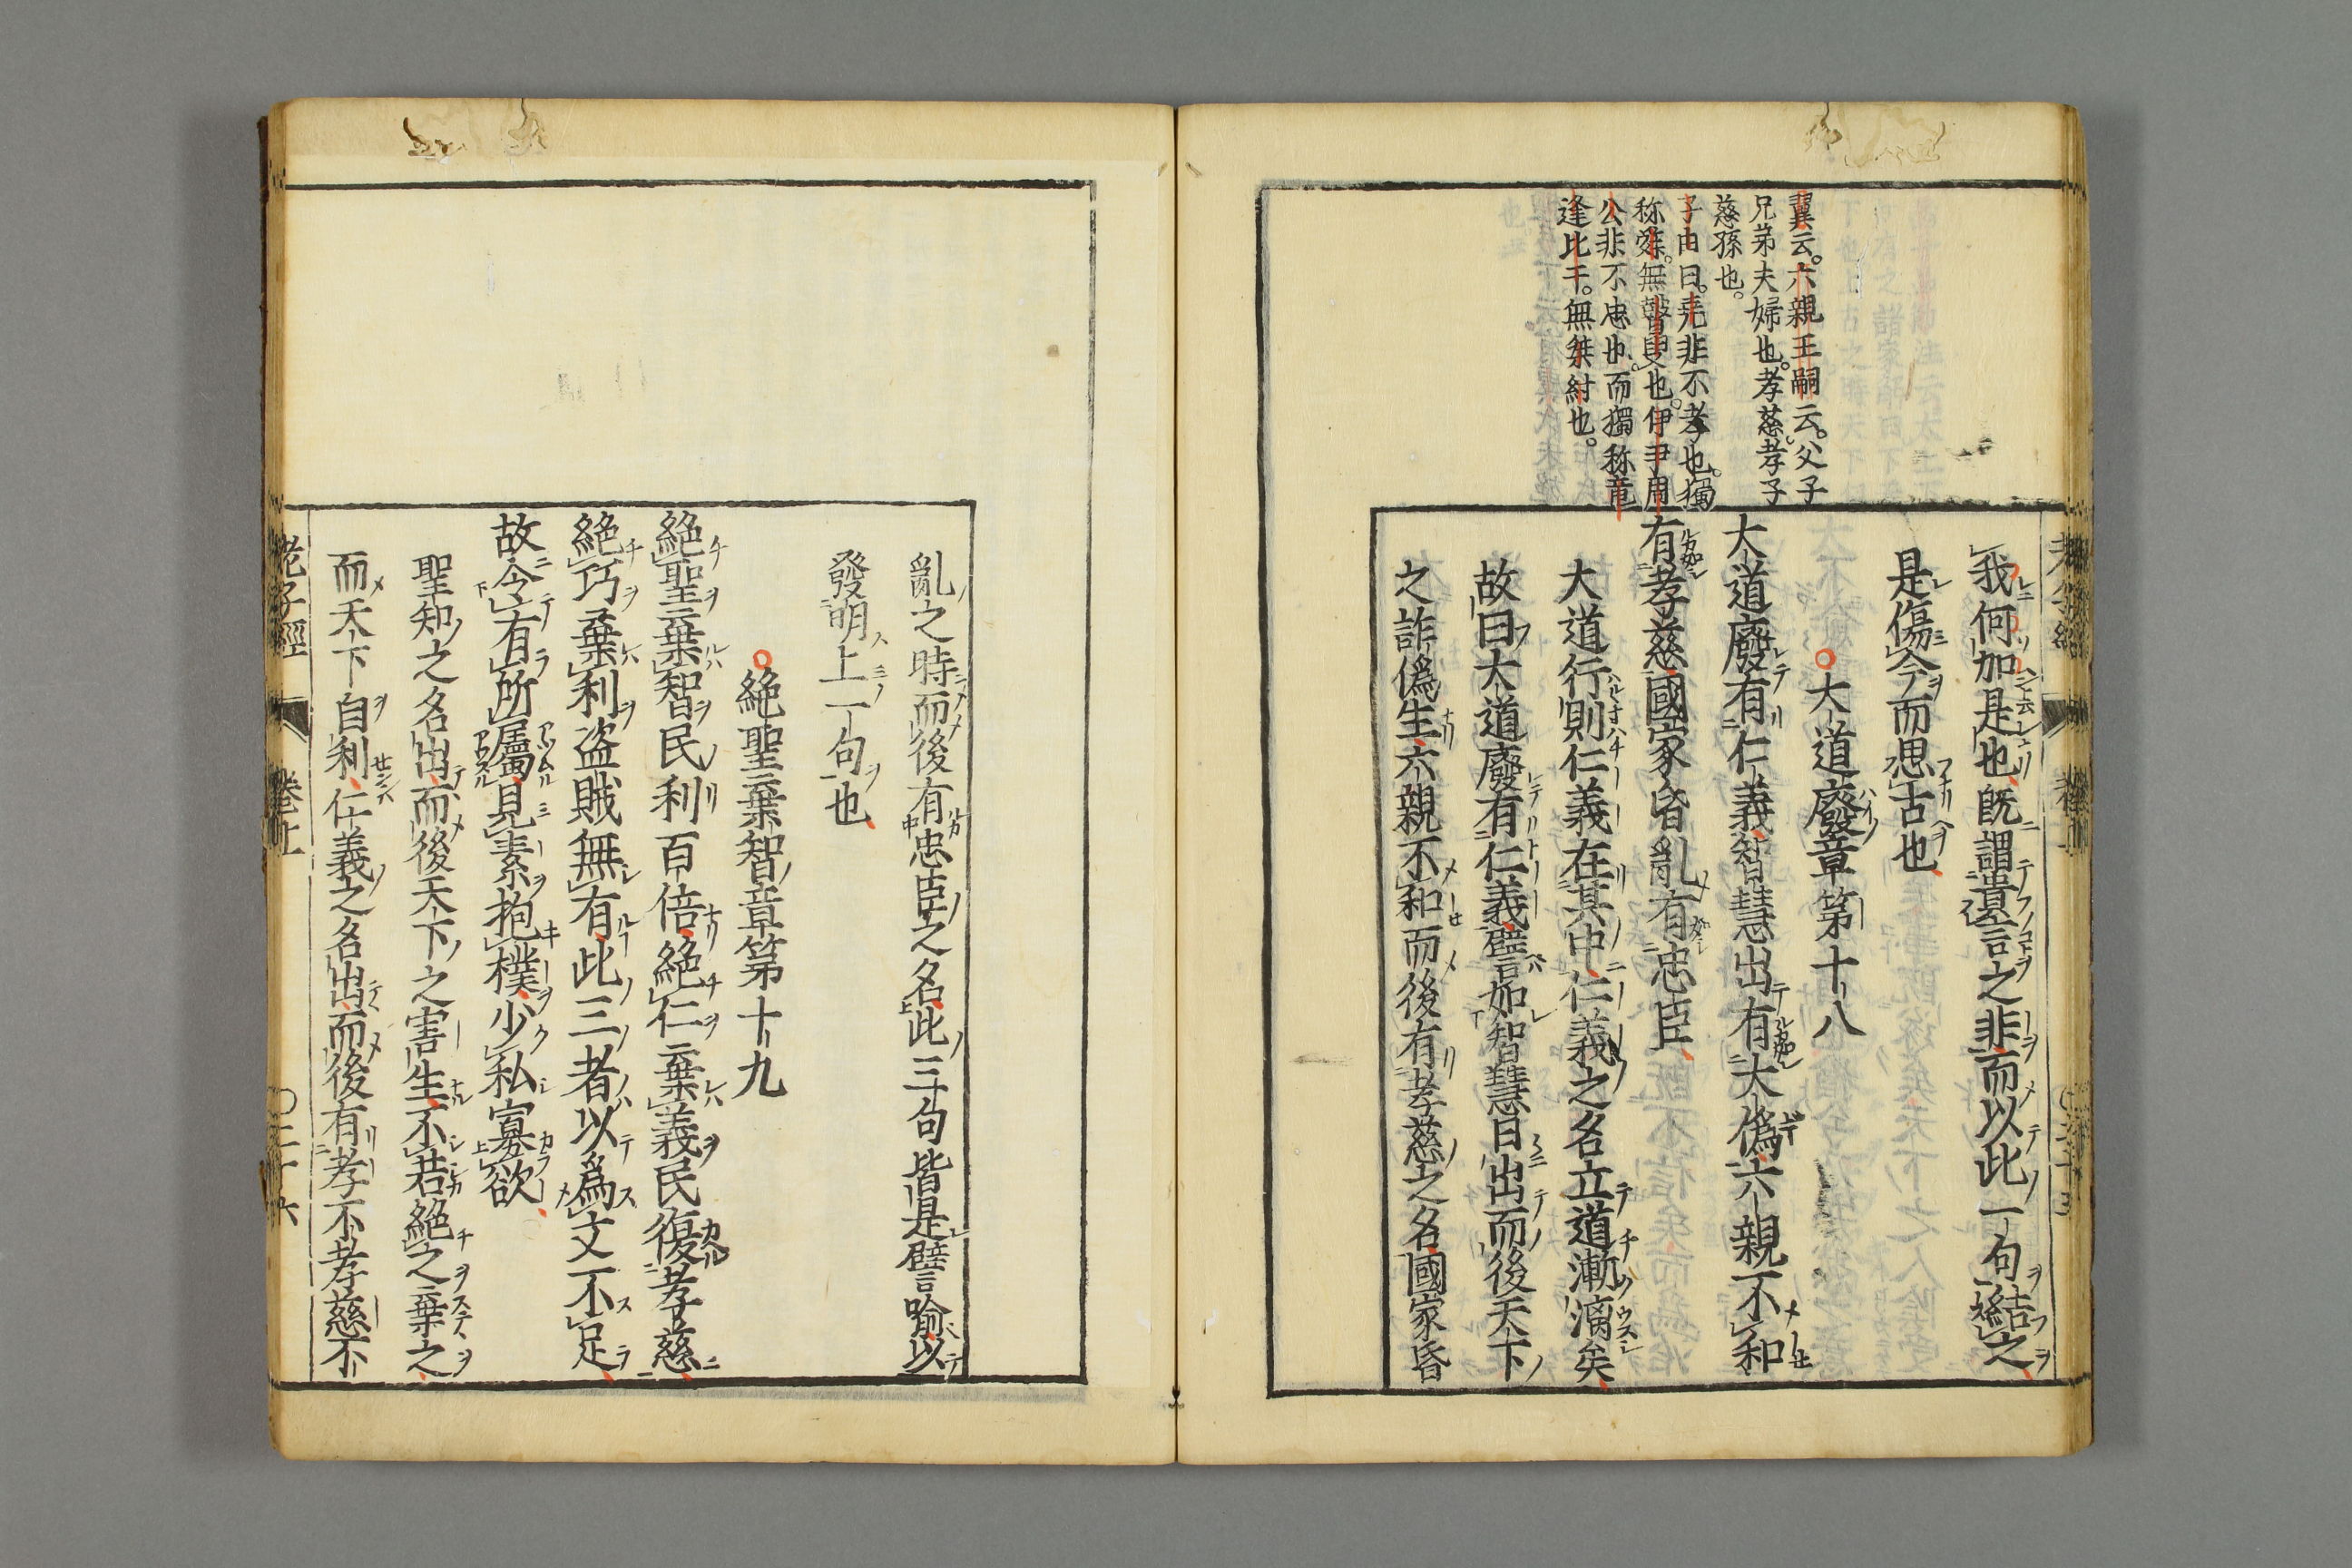 翼云。六親王嗣云。父子
兄弟夫婦也。孝慈孝子
慈孫也。
子由曰。堯非不孝也。獨
称舜。無瞽叟也。伊尹周
公非不忠也。而獨称竜
逢比干。無桀紂也。
我何加是也既謂遺言之非而以此一句結之
是傷今而思古也
大道廢章第十八
大道廢有仁義智慧出有大偽六親不和
有孝慈國家昏亂有忠臣
大道行則仁義在其中仁義之名立道漸漓矣
故曰大道廢有仁義譬如智慧日出而後天下
之詐偽生六親不和而後有孝慈之名國家昏
亂之時而後有忠臣之名此三句皆是譬喻以
發明上一句也
絶聖棄智章第十九
絶聖棄智民利百倍絶仁棄義民復孝慈
絶巧棄利盗賊無有此三者以爲文不足
故令有所屬見素抱樸少私寡欲
聖知之名出而後天下之害生不若絶之棄之
而天下自利仁義之名出而後有孝不孝慈不
老子經 卷上 〇二十六